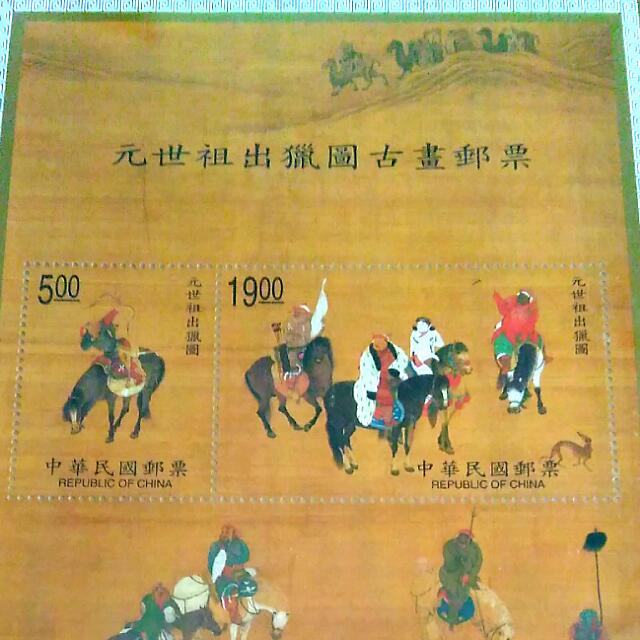 元世祖出獵圖古畫郵票
500
元世祖出獵圖
中華民國郵票
REPUBLIC OF CHINA
1900
元世祖出獵圖
中華民國郵票
REPUBLIC OF CHINA